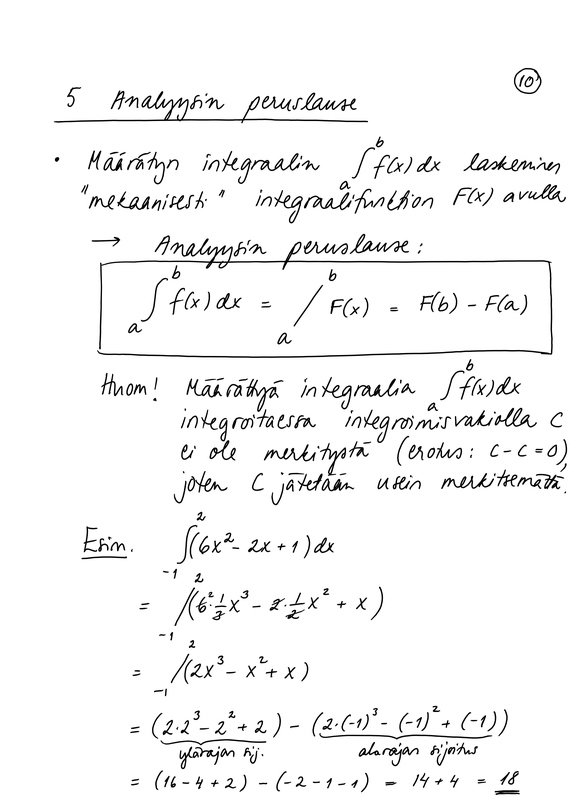 10
5 Analyysin peruslause
• Määrätyn integraalin ∫_a^b f(x) dx laskeminen
"mekaanisesti" integraalifunktion F(x) avulla
→ Analyysin peruslause:
∫_a^b f(x) dx = /_a^b F(x) = F(b) - F(a)
Huom! Määrättyä integraalia ∫_a^b f(x) dx
integroitaessa integroimisvakiolla C
ei ole merkitystä (erotus: C-C=0),
joten C jätetään usein merkitsemättä.
Esim. ∫_{-1}^2 (6x² - 2x + 1) dx
= /_{-1}^2 (6² · 1/3 x³ - 2 · 1/2 x² + x)
= /_{-1}^2 (2x³ - x² + x)
= (2·2³ - 2² + 2) - (2·(-1)³ - (-1)² + (-1))
ylärajan sij. alarajan sijoitus
= (16 - 4 + 2) - (-2 - 1 - 1) = 14 + 4 = 18